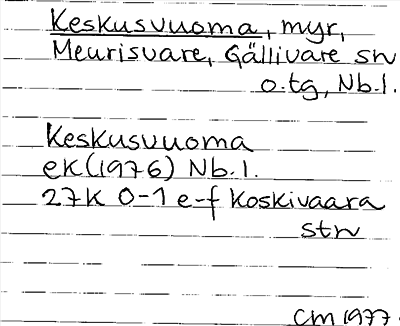 Keskusvuoma, myr,
Meurisvare, Gällivare sn
o. tg, Nb. l.
Keskusvuoma
ek (1976) Nb. l.
27K 0-1 e-f Koskivaara
stn
CM 1977